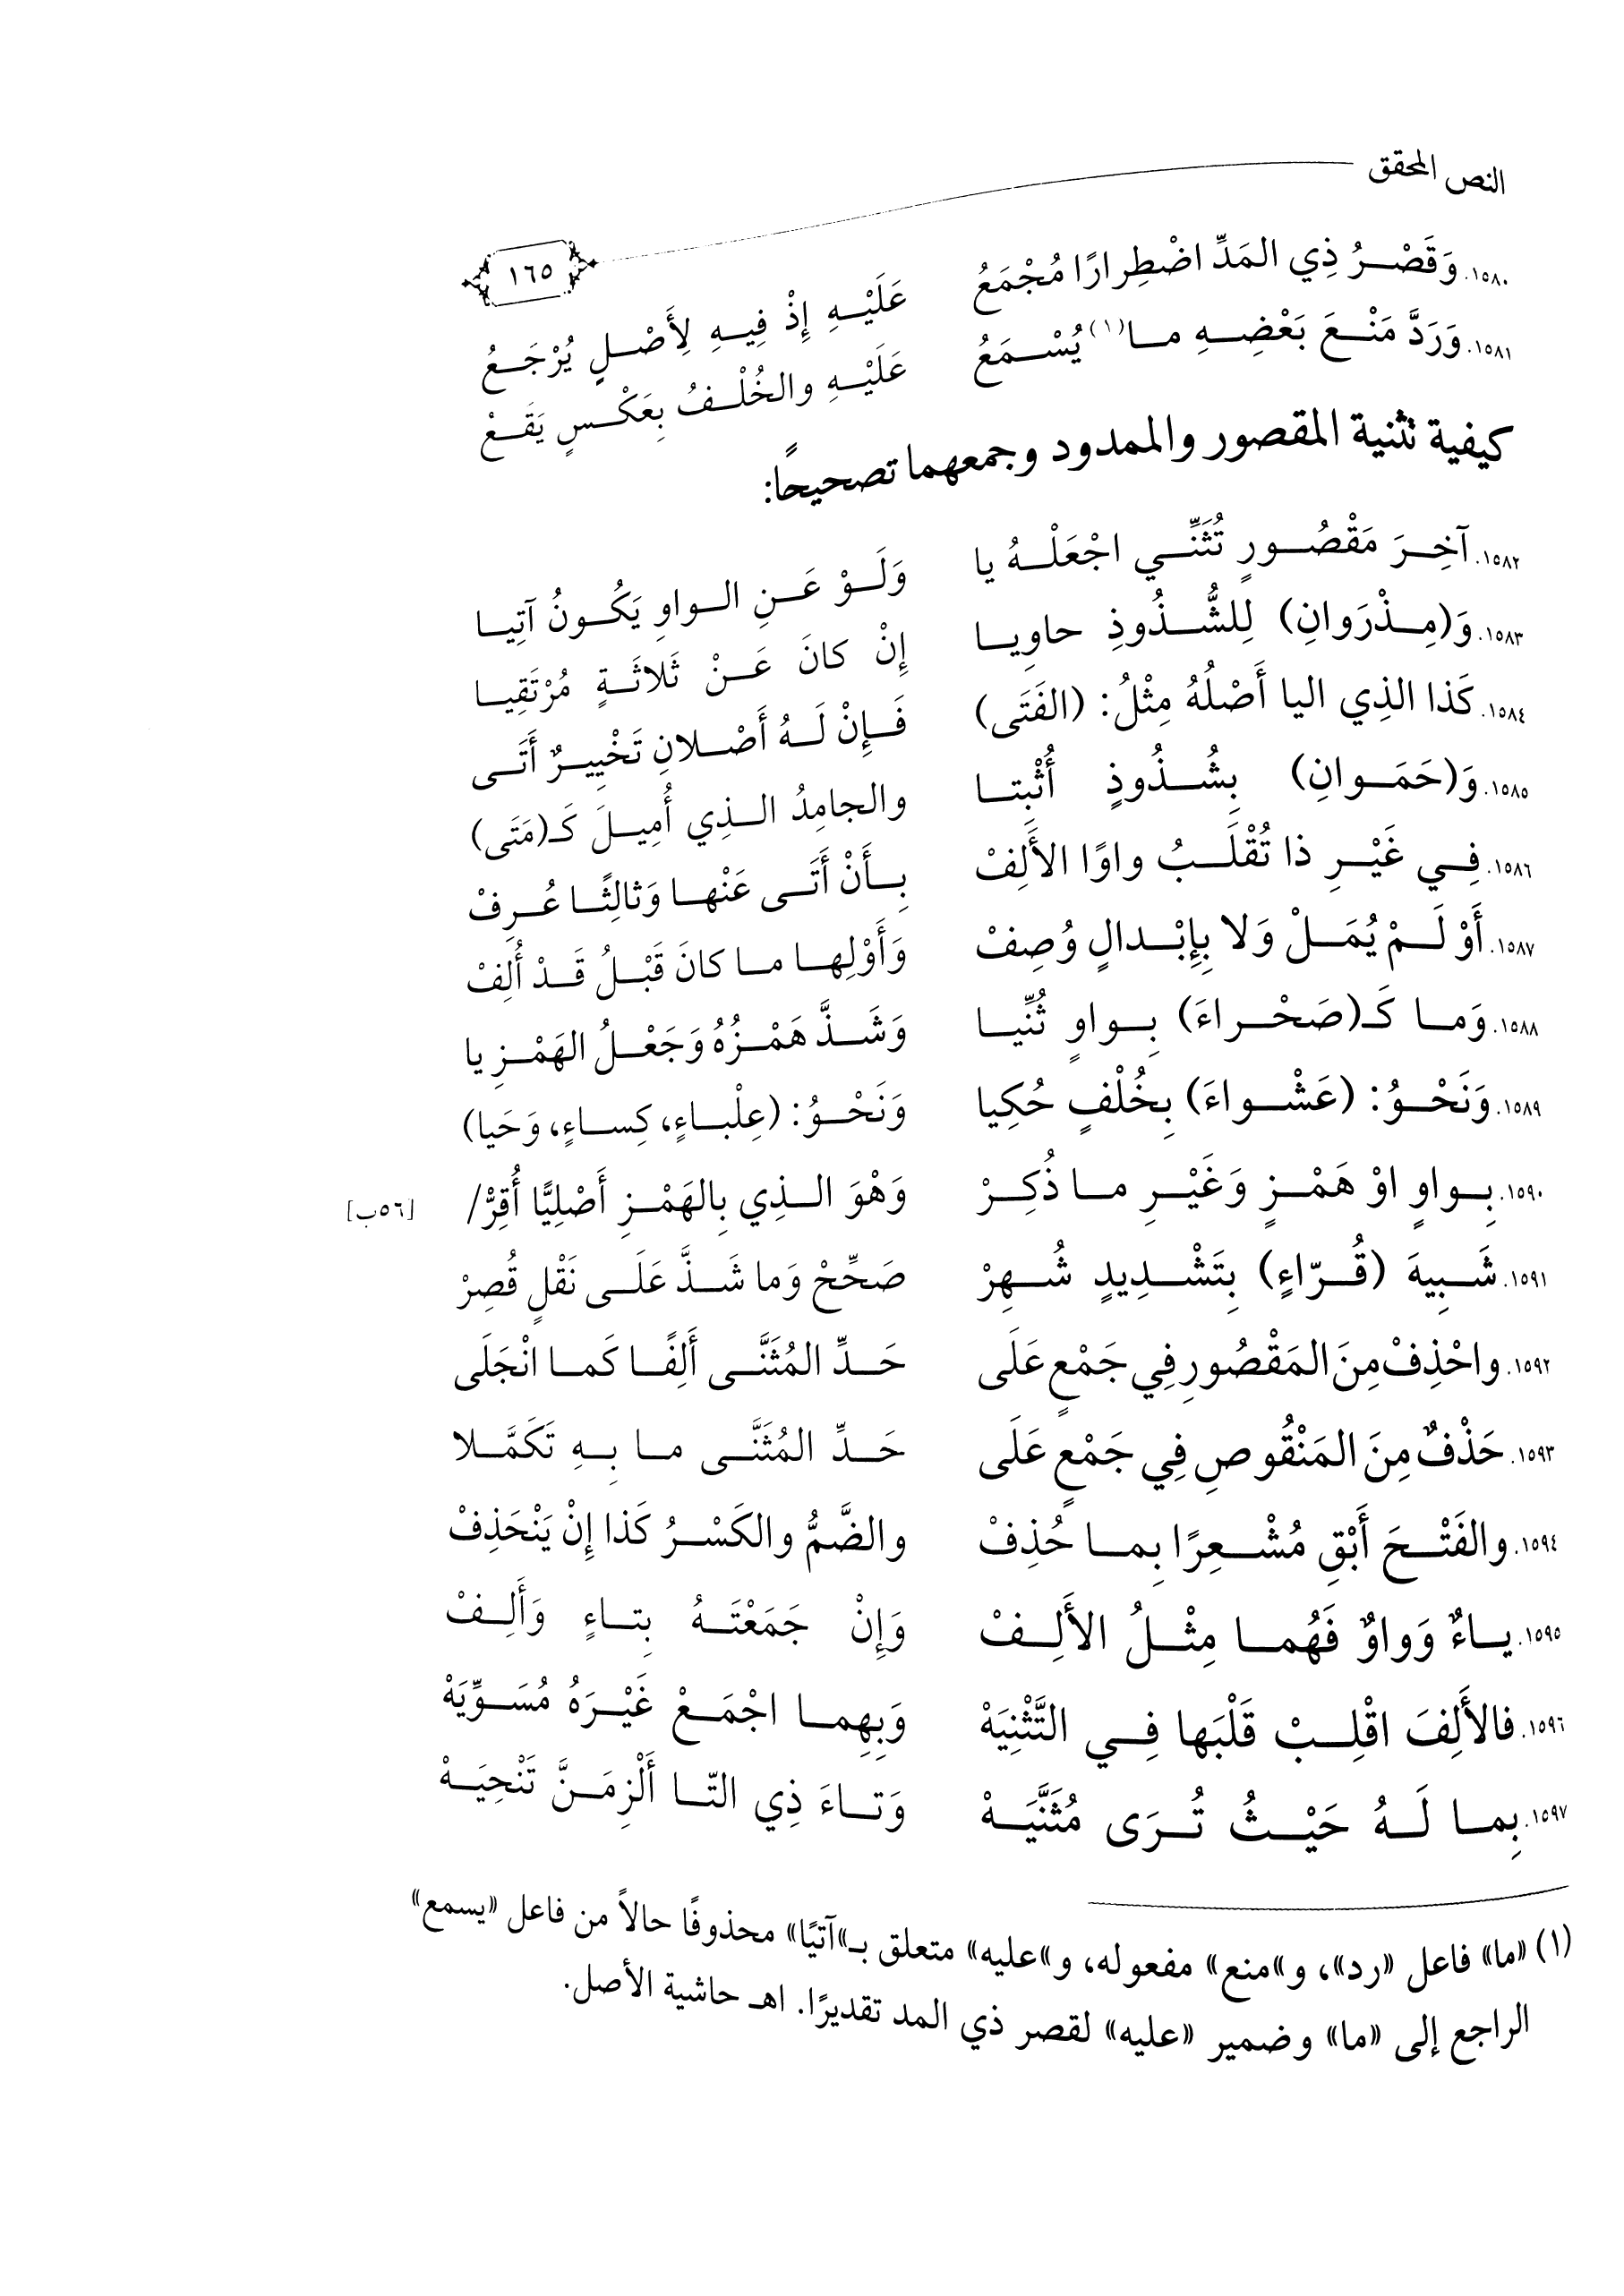 النص المحقق
١٦٥
١٥٨٠. وَقَصْرُ ذِي المَدِّ اضْطِرارًا مُجْمَعُ عَلَيْهِ إِذْ فِيهِ لِأَصْلٍ يُرْجَعُ
١٥٨١. وَرَدَّ مَنْعَ بَعْضِهِ ما(١) يُسْمَعُ عَلَيْهِ والخُلْفُ بِعَكْسٍ يَقَعْ
كيفية تثنية المقصور والممدود وجمعهما تصحيحًا:
١٥٨٢. آخِرَ مَقْصُورٍ تُثَنِّي اجْعَلْهُ يا وَلَوْ عَنِ الواوِ يَكُونُ آتِيا
١٥٨٣. وَ(مِذْرَوانِ) لِلشُّذُوذِ حاوِيا إِنْ كانَ عَنْ ثَلاثَةٍ مُرْتَقِيا
١٥٨٤. كَذا الذِي اليا أَصْلُهُ مِثْلُ: (الفَتَى) فَإِنْ لَهُ أَصْلانِ تَخْيِيرٌ أَتَى
١٥٨٥. وَ(حَمَوانِ) بِشُذُوذٍ أُثْبِتا والجامِدُ الذِي أُمِيلَ كَـ(مَتَى)
١٥٨٦. فِي غَيْرِ ذا تُقْلَبُ واوًا الأَلِفْ بِأَنْ أَتَى عَنْها وَثالِثًا عُرِفْ
١٥٨٧. أَوْ لَمْ يُمَلْ وَلا بِإِبْدالٍ وُصِفْ وَأَوْلِها ما كانَ قَبْلُ قَدْ أُلِفْ
١٥٨٨. وَما كَـ(صَحْراءَ) بِواوٍ ثُنِّيا وَشَذَّ هَمْزُهُ وَجَعْلُ الهَمْزِ يا
١٥٨٩. وَنَحْوُ: (عَشْواءَ) بِخُلْفٍ حُكِيا وَنَحْوُ: (عِلْباءٍ، كِساءٍ، وَحَيا)
١٥٩٠. بِواوٍ اوْ هَمْزٍ وَغَيْرِ ما ذُكِرْ وَهْوَ الذِي بِالهَمْزِ أَصْلِيًّا أُقِرّْ/ [٥٦ب]
١٥٩١. شَبِيهَ (قُرّاءٍ) بِتَشْدِيدٍ شُهِرْ صَحِّحْ وَما شَذَّ عَلَى نَقْلٍ قُصِرْ
١٥٩٢. واحْذِفْ مِنَ المَقْصُورِ فِي جَمْعٍ عَلَى حَدِّ المُثَنَّى أَلِفًا كَما انْجَلَى
١٥٩٣. حَذْفٌ مِنَ المَنْقُوصِ فِي جَمْعٍ عَلَى حَدِّ المُثَنَّى ما بِهِ تَكَمَّلا
١٥٩٤. والفَتْحَ أَبْقِ مُشْعِرًا بِما حُذِفْ والضَّمُّ والكَسْرُ كَذا إِنْ يَنْحَذِفْ
١٥٩٥. ياءٌ وَواوٌ فَهُما مِثْلُ الأَلِفْ وَإِنْ جَمَعْتَهُ بِتاءٍ وَأَلِفْ
١٥٩٦. فالأَلِفَ اقْلِبْ قَلْبَها فِي التَّثْنِيَهْ وَبِهِما اجْمَعْ غَيْرَهُ مُسَوِّيَهْ
١٥٩٧. بِما لَهُ حَيْثُ تُرَى مُثَنَّيَهْ وَتاءَ ذِي التّا أَلْزِمَنَّ تَنْحِيَهْ
(١) «ما» فاعل «رد»، و»منع» مفعوله، و»عليه» متعلق بـ»آتيًا» محذوفًا حالاً من فاعل «يسمع»
الراجع إلى «ما» وضمير «عليه» لقصر ذي المد تقديرًا. اهـ حاشية الأصل.